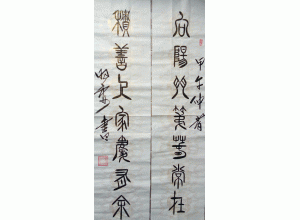 向陽門第春常在
甲午仲春
積善人家慶有余
書